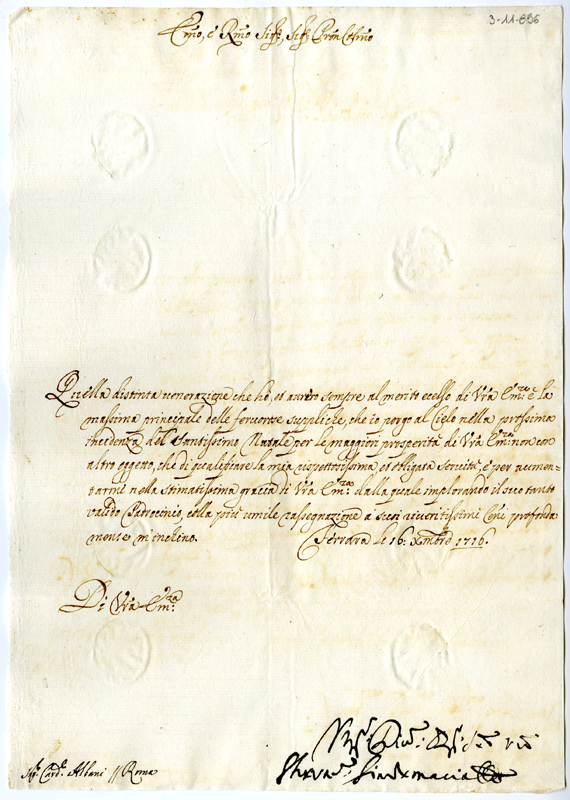 3-11-896
Emo, e Rmo Sigr, Sigr Pron Colmo
Quella distinta venerazione che ho, et avrò sempre al merito eccelso di Vra Emza è la
massima principale delle fervorose suppliche, che io porgo al Cielo nella prossima
incidenza del Santissimo Natale, per le maggiori prosperità di Vra Emza non con
altro oggetto, che di qualificare la mia rispettosissima et obligata servitù, e per aumen=
tarmi nella stimatissima grazia di Vra Emza dalla quale implorando il suo tanto
valido Patrocinio, colla più umile rassegnazione a suoi riveritissimi Cōni profonda
mente m'inclino. Ferrara li 16: Xmbre 1716.
Di Vra Emza
Sigr Cardle Albani // Roma